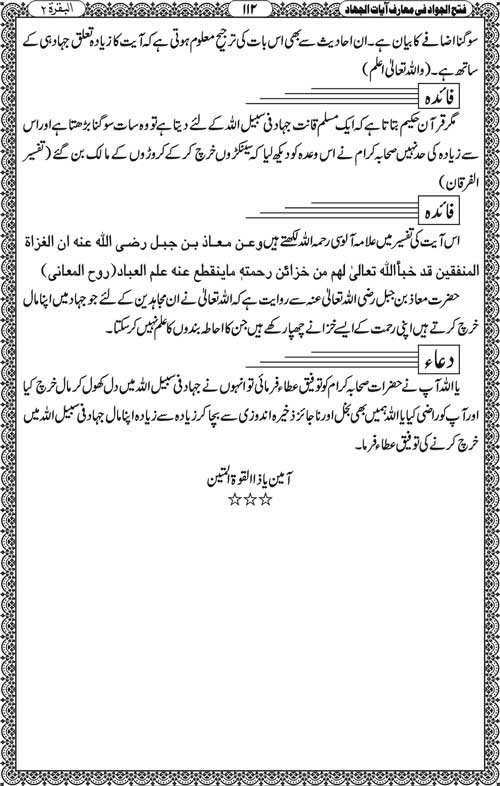 فتح الجواد فی معارف آیات الجهاد
۱۱۲
البقرة ۲
سو گنا اضافے کا بیان ہے۔ ان احادیث سے بھی اس بات کی ترجیح معلوم ہوتی ہے کہ آیت کا زیادہ تعلق جہاد ہی کے
ساتھ ہے۔ (واللہ تعالیٰ اعلم)
فائدہ
مگر قرآن حکیم بتاتا ہے کہ ایک مسلم قانت جہاد فی سبیل اللہ کے لئے دیتا ہے تو وہ سات سو گنا بڑھتا ہے اور اس
سے زیادہ کی حد نہیں صحابہ کرام نے اس وعدہ کو دیکھ لیا کہ سینکڑوں خرچ کر کے کروڑوں کے مالک بن گئے (تفسیر
الفرقان)
فائدہ
اس آیت کی تفسیر میں علامہ آلوسی رحمہ اللہ لکھتے ہیں وعن معاذ بن جبل رضی الله عنه ان الغزاة
المنفقین قد خبأالله تعالیٰ لهم من خزائن رحمتهٖ ماینقطع عنه علم العباد (روح المعانی)
حضرت معاذ بن جبل رضی اللہ تعالیٰ عنہ سے روایت ہے کہ اللہ تعالیٰ نے ان مجاہدین کے لئے جو جہاد میں اپنا مال
خرچ کرتے ہیں اپنی رحمت کے ایسے خزانے چھپا رکھے ہیں جن کا احاطہ بندوں کا علم نہیں کر سکتا۔
دعاء
یا اللہ آپ نے حضرات صحابہ کرام کو توفیق عطاء فرمائی تو انہوں نے جہاد فی سبیل اللہ میں دل کھول کر مال خرچ کیا
اور آپ کو راضی کیا یا اللہ ہمیں بھی بخل اور ناجائز ذخیرہ اندوزی سے بچا کر زیادہ سے زیادہ اپنا مال جہاد فی سبیل اللہ میں
خرچ کرنے کی توفیق عطاء فرما۔
آمین یا ذا القوة المتین
☆☆☆